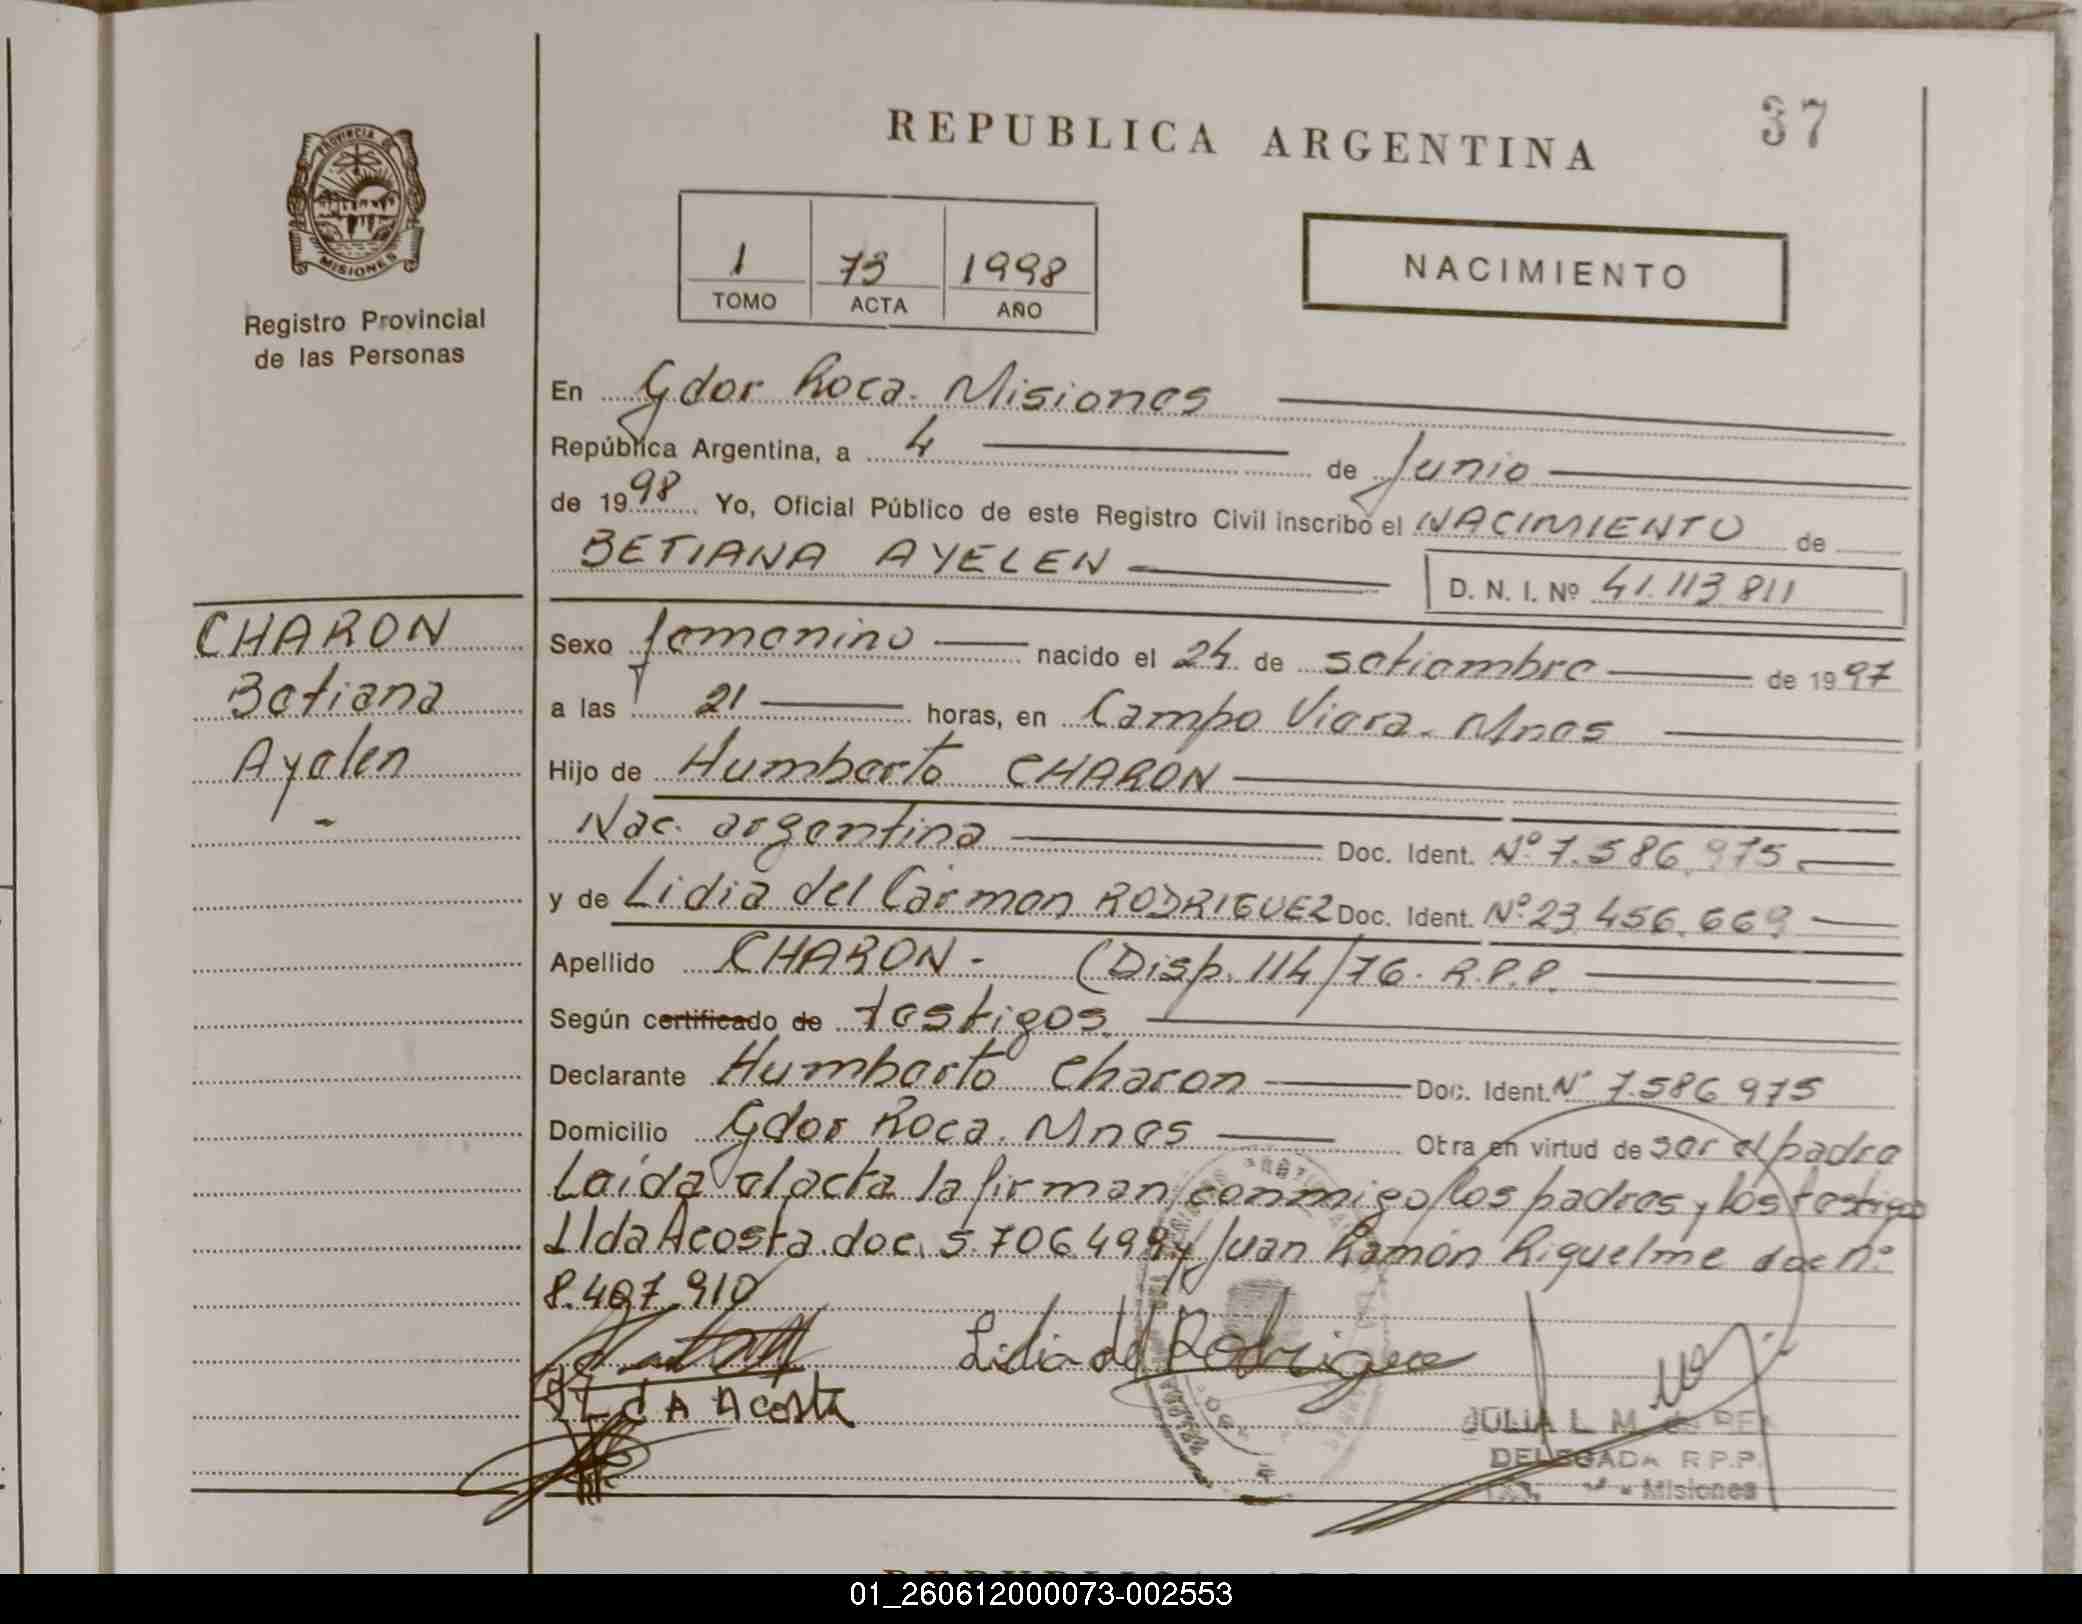 37
REPUBLICA ARGENTINA
PROVINCIA DE
MISIONES
Registro Provincial
de las Personas
1 73 1998
TOMO ACTA AÑO
NACIMIENTO
En Gdor Roca. Misiones
República Argentina, a 4 de Junio
de 1998 Yo, Oficial Público de este Registro Civil inscribo el NACIMIENTO de
BETIANA AYELEN D. N. I. Nº 41.113.811
CHARON
Betiana
Ayelen
Sexo femenino nacido el 24 de setiembre de 1997
a las 21 horas, en Campo Viera. Mnes
Hijo de Humberto CHARON
Nac. argentina Doc. Ident. Nº 7.586.975
y de Lidia del Carmen RODRIGUEZ Doc. Ident. Nº 23.456.669
Apellido CHARON - (Disp. 114/76. R.P.P.
Según certificado de testigos.
Declarante Humberto Charon Doc. Ident. Nº 7.586.975
Domicilio Gdor Roca. Mnes Otra en virtud de ser el padre
Leida el acta la firman conmigo los padres y los testigos
Ilda Acosta doc. 5.706.499 y Juan Ramón Riquelme doc nº
8.407.910
Lidia del Rodrigue
ILdA Acosta
JULIA L. M. de
DELEGADA R.P.P.
Misiones
01_260612000073-002553